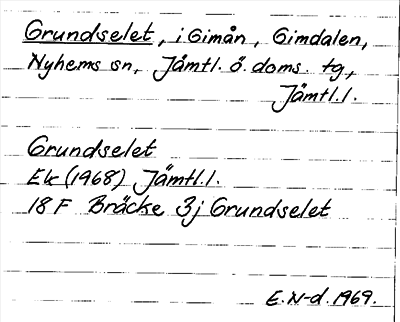 Grundselet, i Gimån, Gimdalen,
Nyhems sn, Jämtl. ö. doms. tg,
Jämtl.l.
Grundselet
Ek (1968) Jämtl.l.
18 F Bräcke 3j Grundselet
E.N-d. 1969.